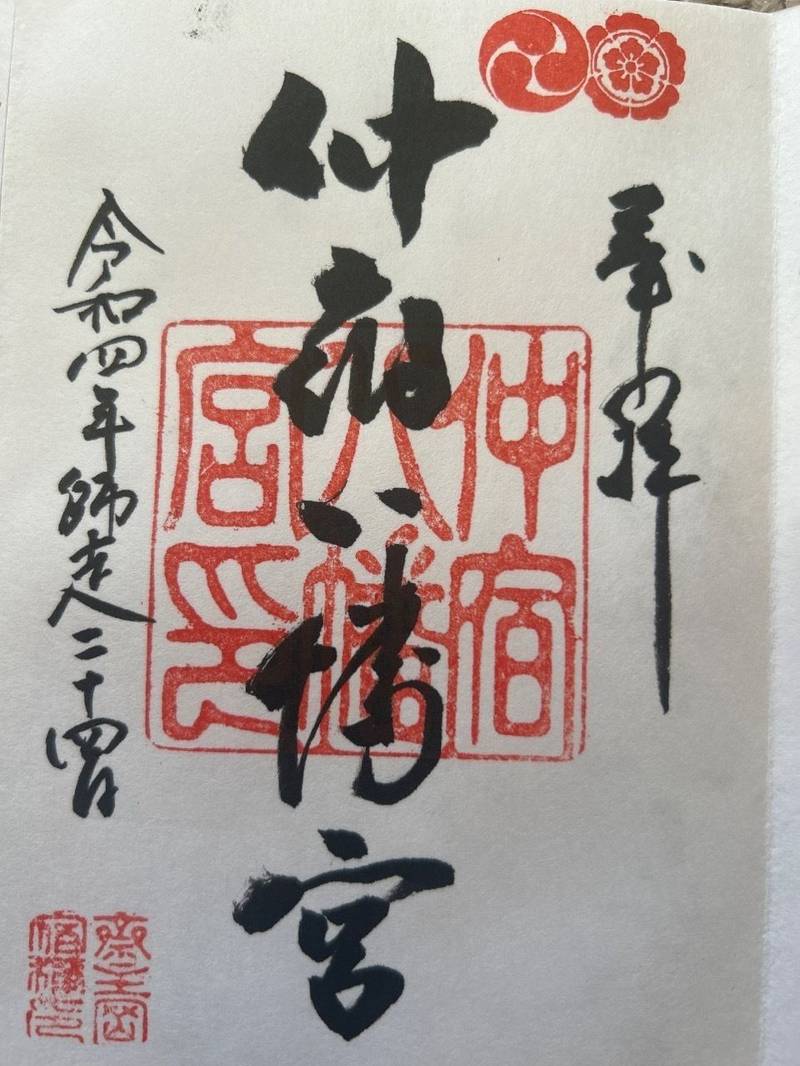 奉拝
仲宿八幡宮
仲宿八幡宮印
令和四年師走二十四日